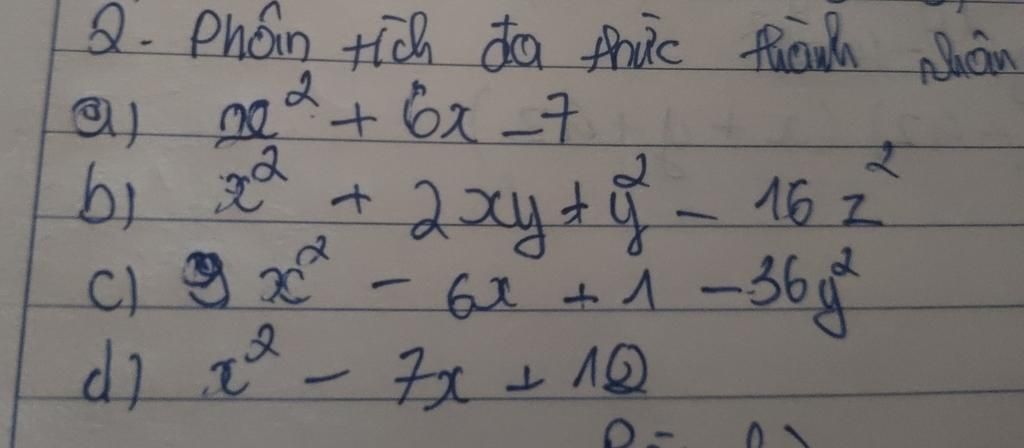 2. Phân tích đa thức thành nhân
a) x² + 6x - 7
b) x² + 2xy + y² - 16z²
c) 9x² - 6x + 1 - 36y²
d) x² - 7x + 12